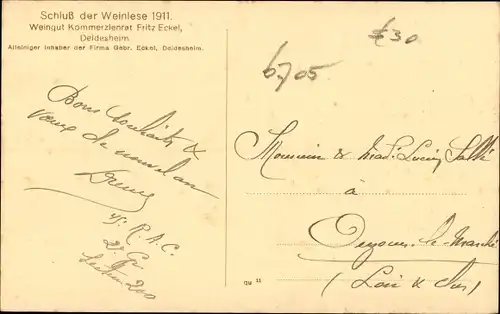 Schluß der Weinlese 1911.
Weingut Kommerzienrat Fritz Eckel,
Deidesheim.
Alleiniger Inhaber der Firma Gebr. Eckel, Deidesheim.
€30
6705
Bons souhaits &
vœux de nouvel an
R.A.C.
Section 200
Monsieur & Mad: Lucien Sallé
à
Ouzouer-le-Marché
(Loir & Cher)
11